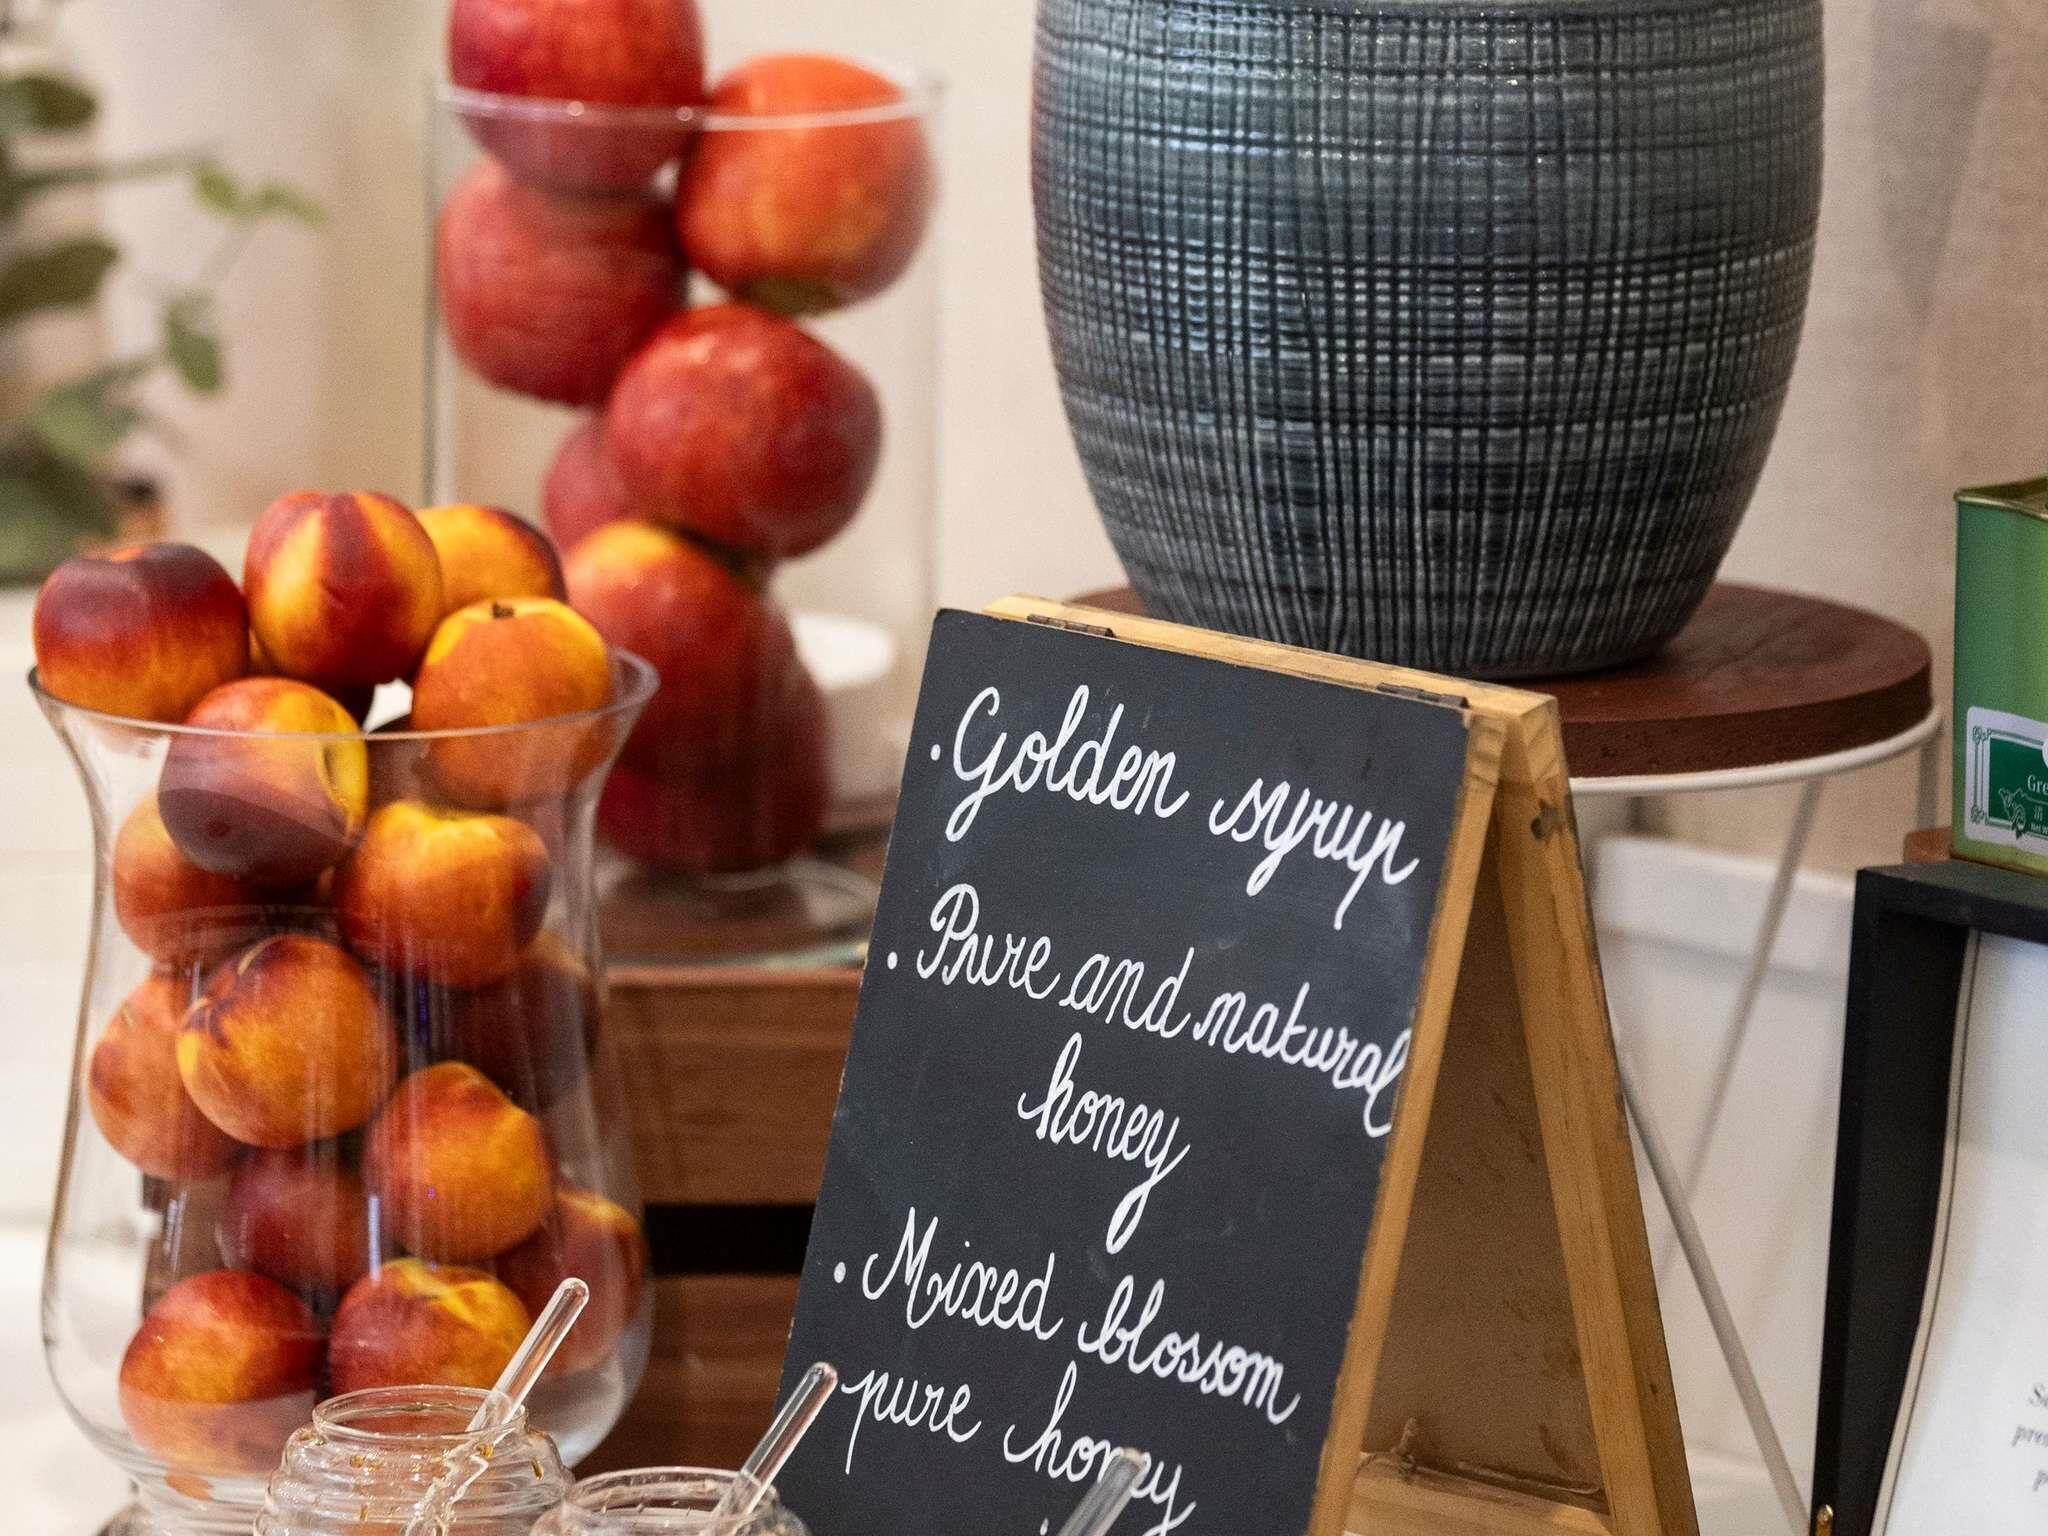 . Golden syrup
. Pure and natural
honey
. Mixed blossom
pure honey